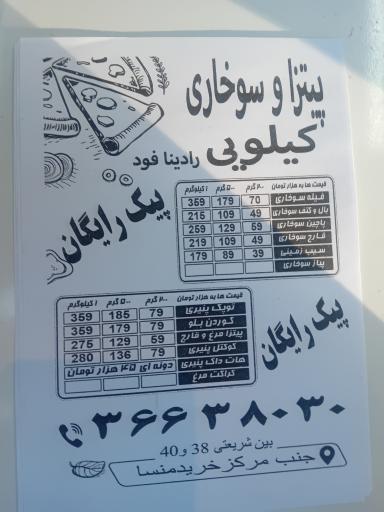 پیتزا و سوخاری
کیلویی رادینا فود
پیک رایگان
قیمت ها به هزار تومان ۲۰۰ گرم ۵۰۰ گرم ۱ کیلوگرم
فیله سوخاری 70 179 359
بال و کتف سوخاری 49 109 215
پاچین سوخاری 59 129 259
قارچ سوخاری 49 109 219
سیب زمینی 39 89 179
پیاز سوخاری
پیک رایگان
قیمت ها به هزار تومان ۲۰۰ گرم ۵۰۰ گرم ۱ کیلوگرم
توپک پنیری 79 185 359
کوردن بلو 79 179 359
پیتزا مرغ و قارچ 59 129 275
کوکتل پنیری 79 136 280
هات داگ پنیری دونه ای ۴۵ هزار تومان
کراکت مرغ
۳۶۶۳۸۰۳۰
بین شریعتی 38 و 40
جنب مرکز خرید منسا